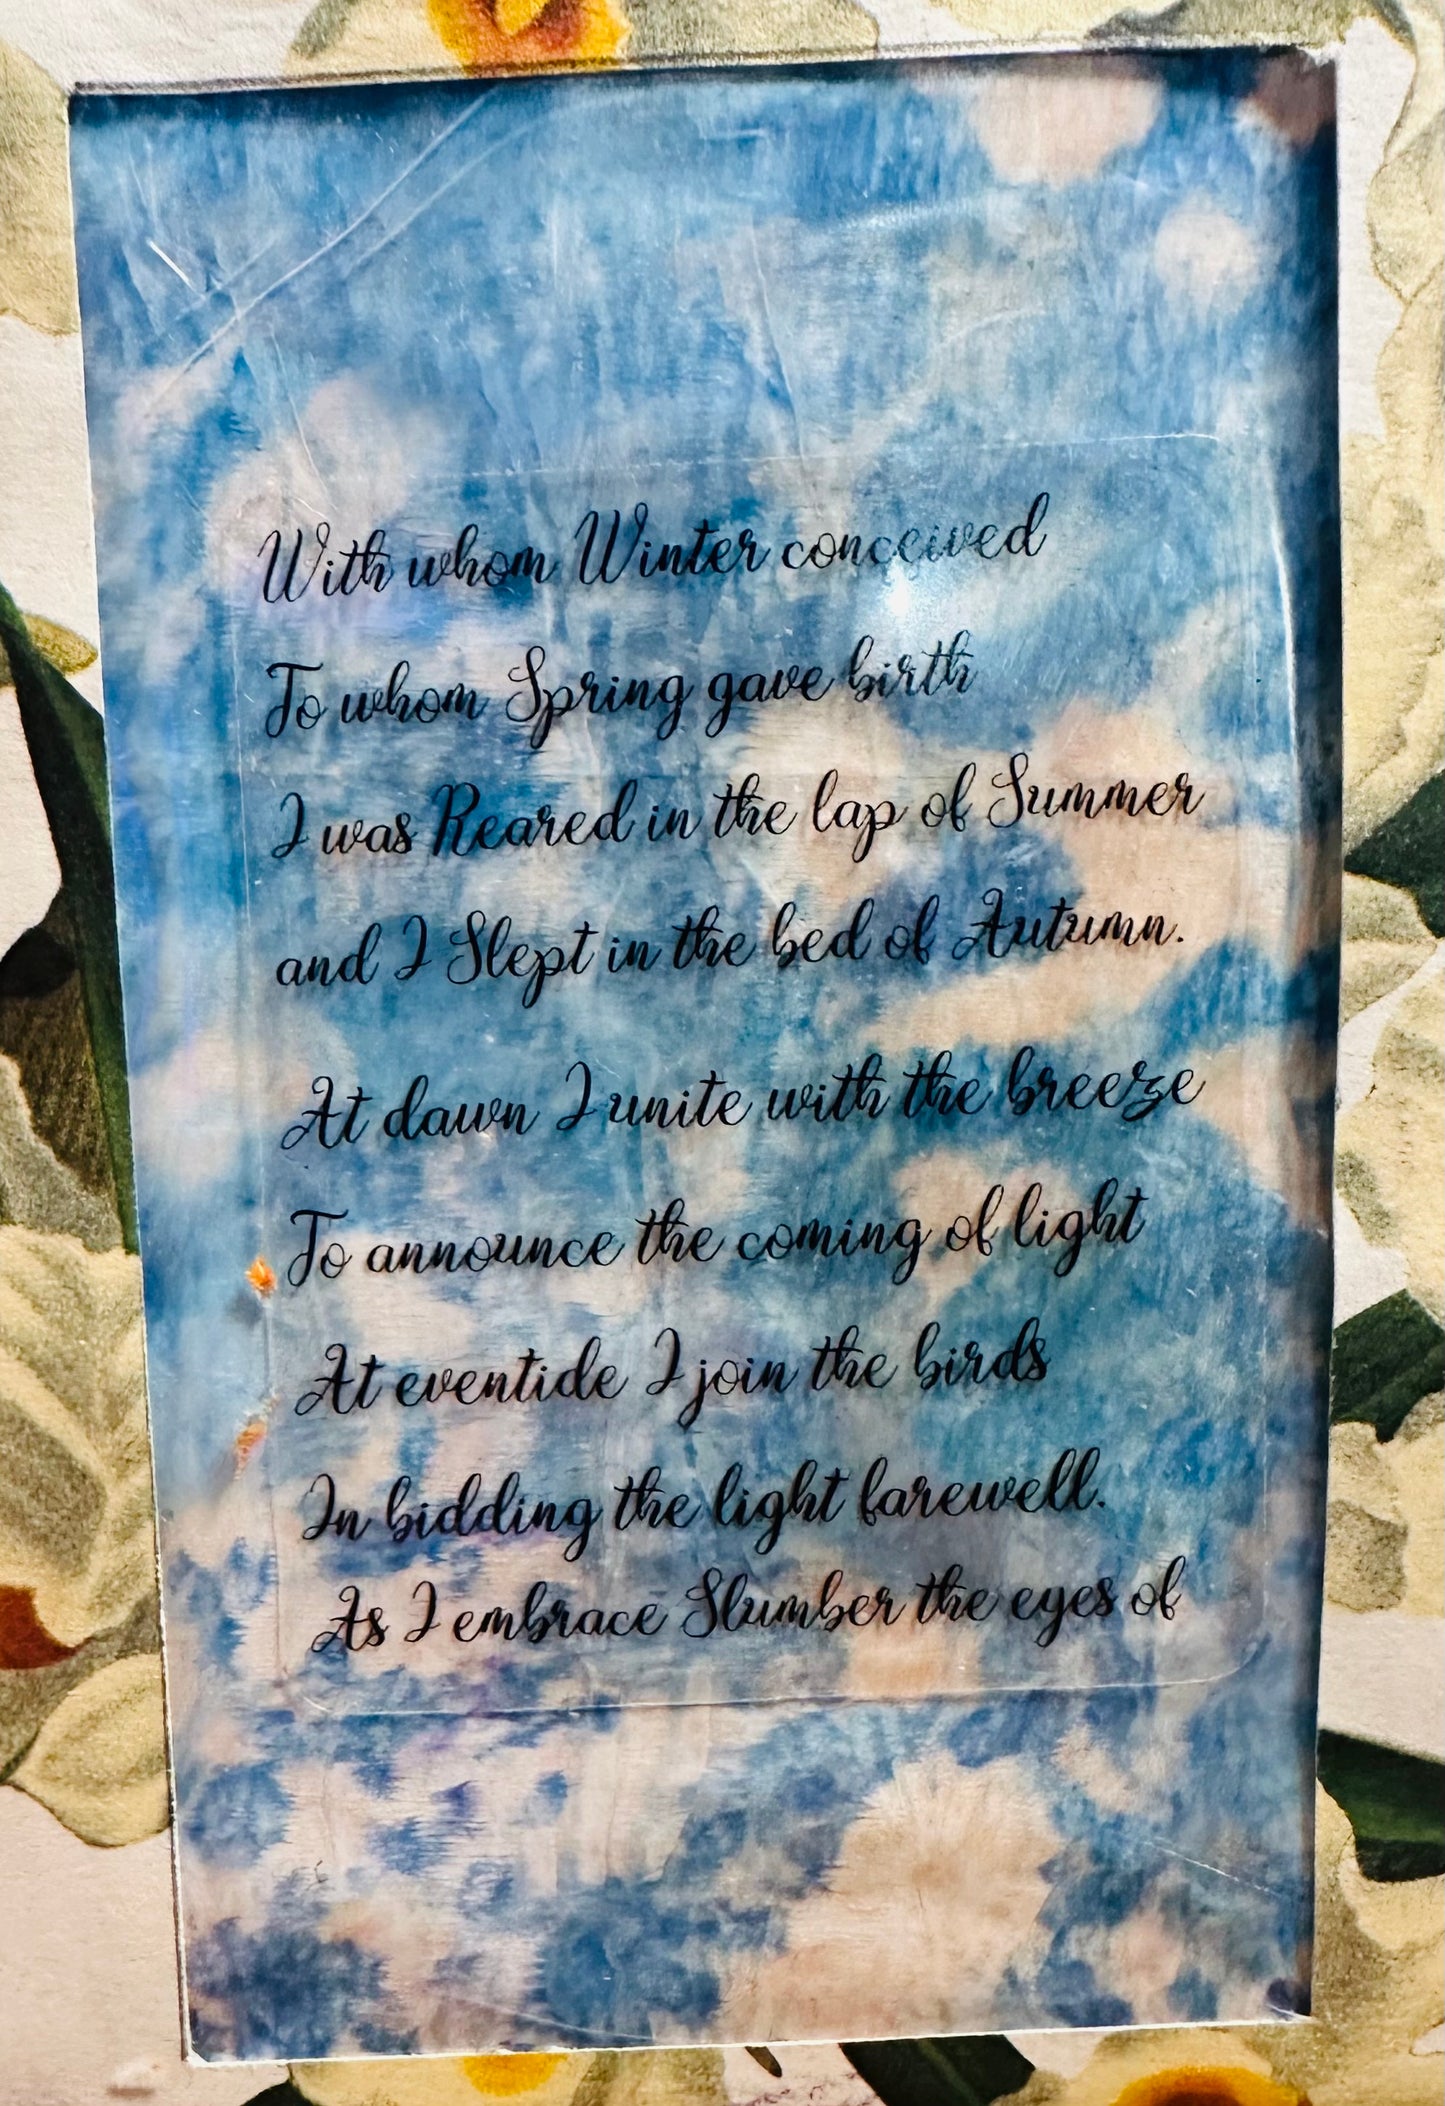 With whom Winter conceived
To whom Spring gave birth
I was Reared in the lap of Summer
and I Slept in the bed of Autumn.
At dawn I unite with the breeze
To announce the coming of light
At eventide I join the birds
In bidding the light farewell.
As I embrace Slumber the eyes of